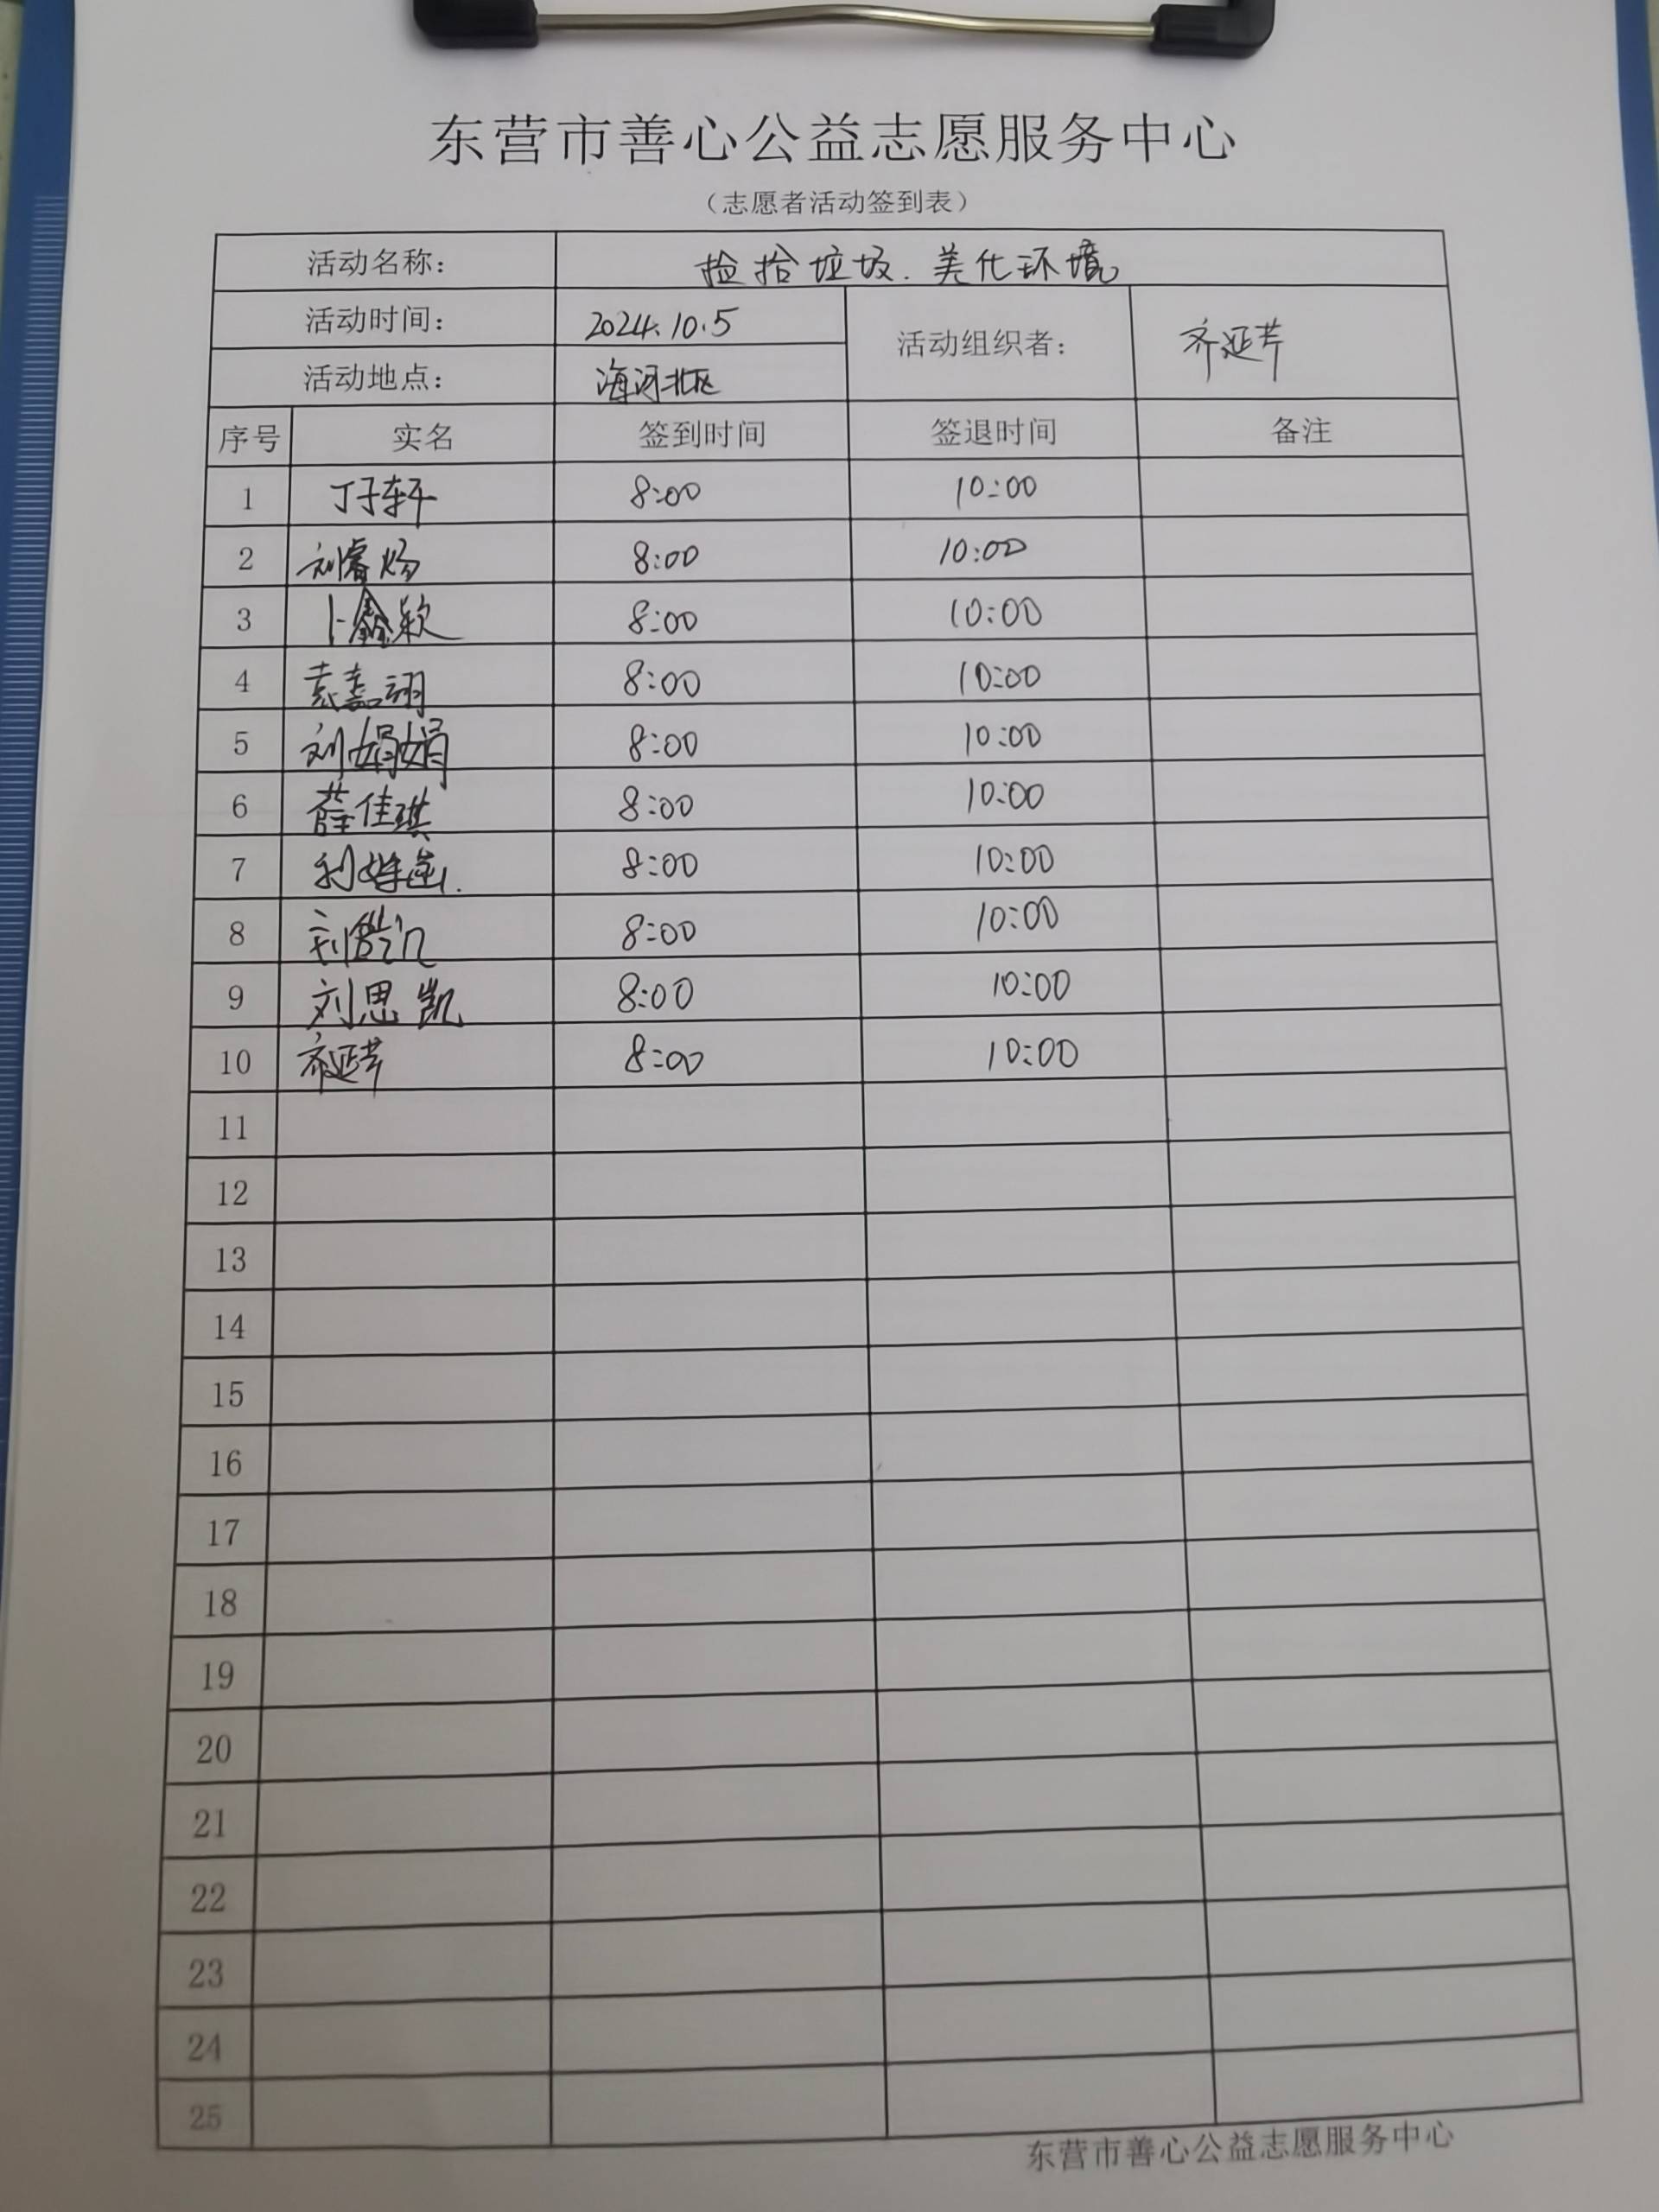 东营市善心公益志愿服务中心
（志愿者活动签到表）
活动名称： 捡拾垃圾.美化环境
活动时间： 2024.10.5 活动组织者： 齐延芹
活动地点： 海河北区
序号 实名 签到时间 签退时间 备注
1 丁子轩 8:00 10:00
2 刘睿炀 8:00 10:00
3 卜鑫颖 8:00 10:00
4 袁嘉翊 8:00 10:00
5 刘娟娟 8:00 10:00
6 薛佳琪 8:00 10:00
7 8:00 10:00
8 8:00 10:00
9 刘思凯 8:00 10:00
10 齐延芹 8:00 10:00
11
12
13
14
15
16
17
18
19
20
21
22
23
24
25
东营市善心公益志愿服务中心